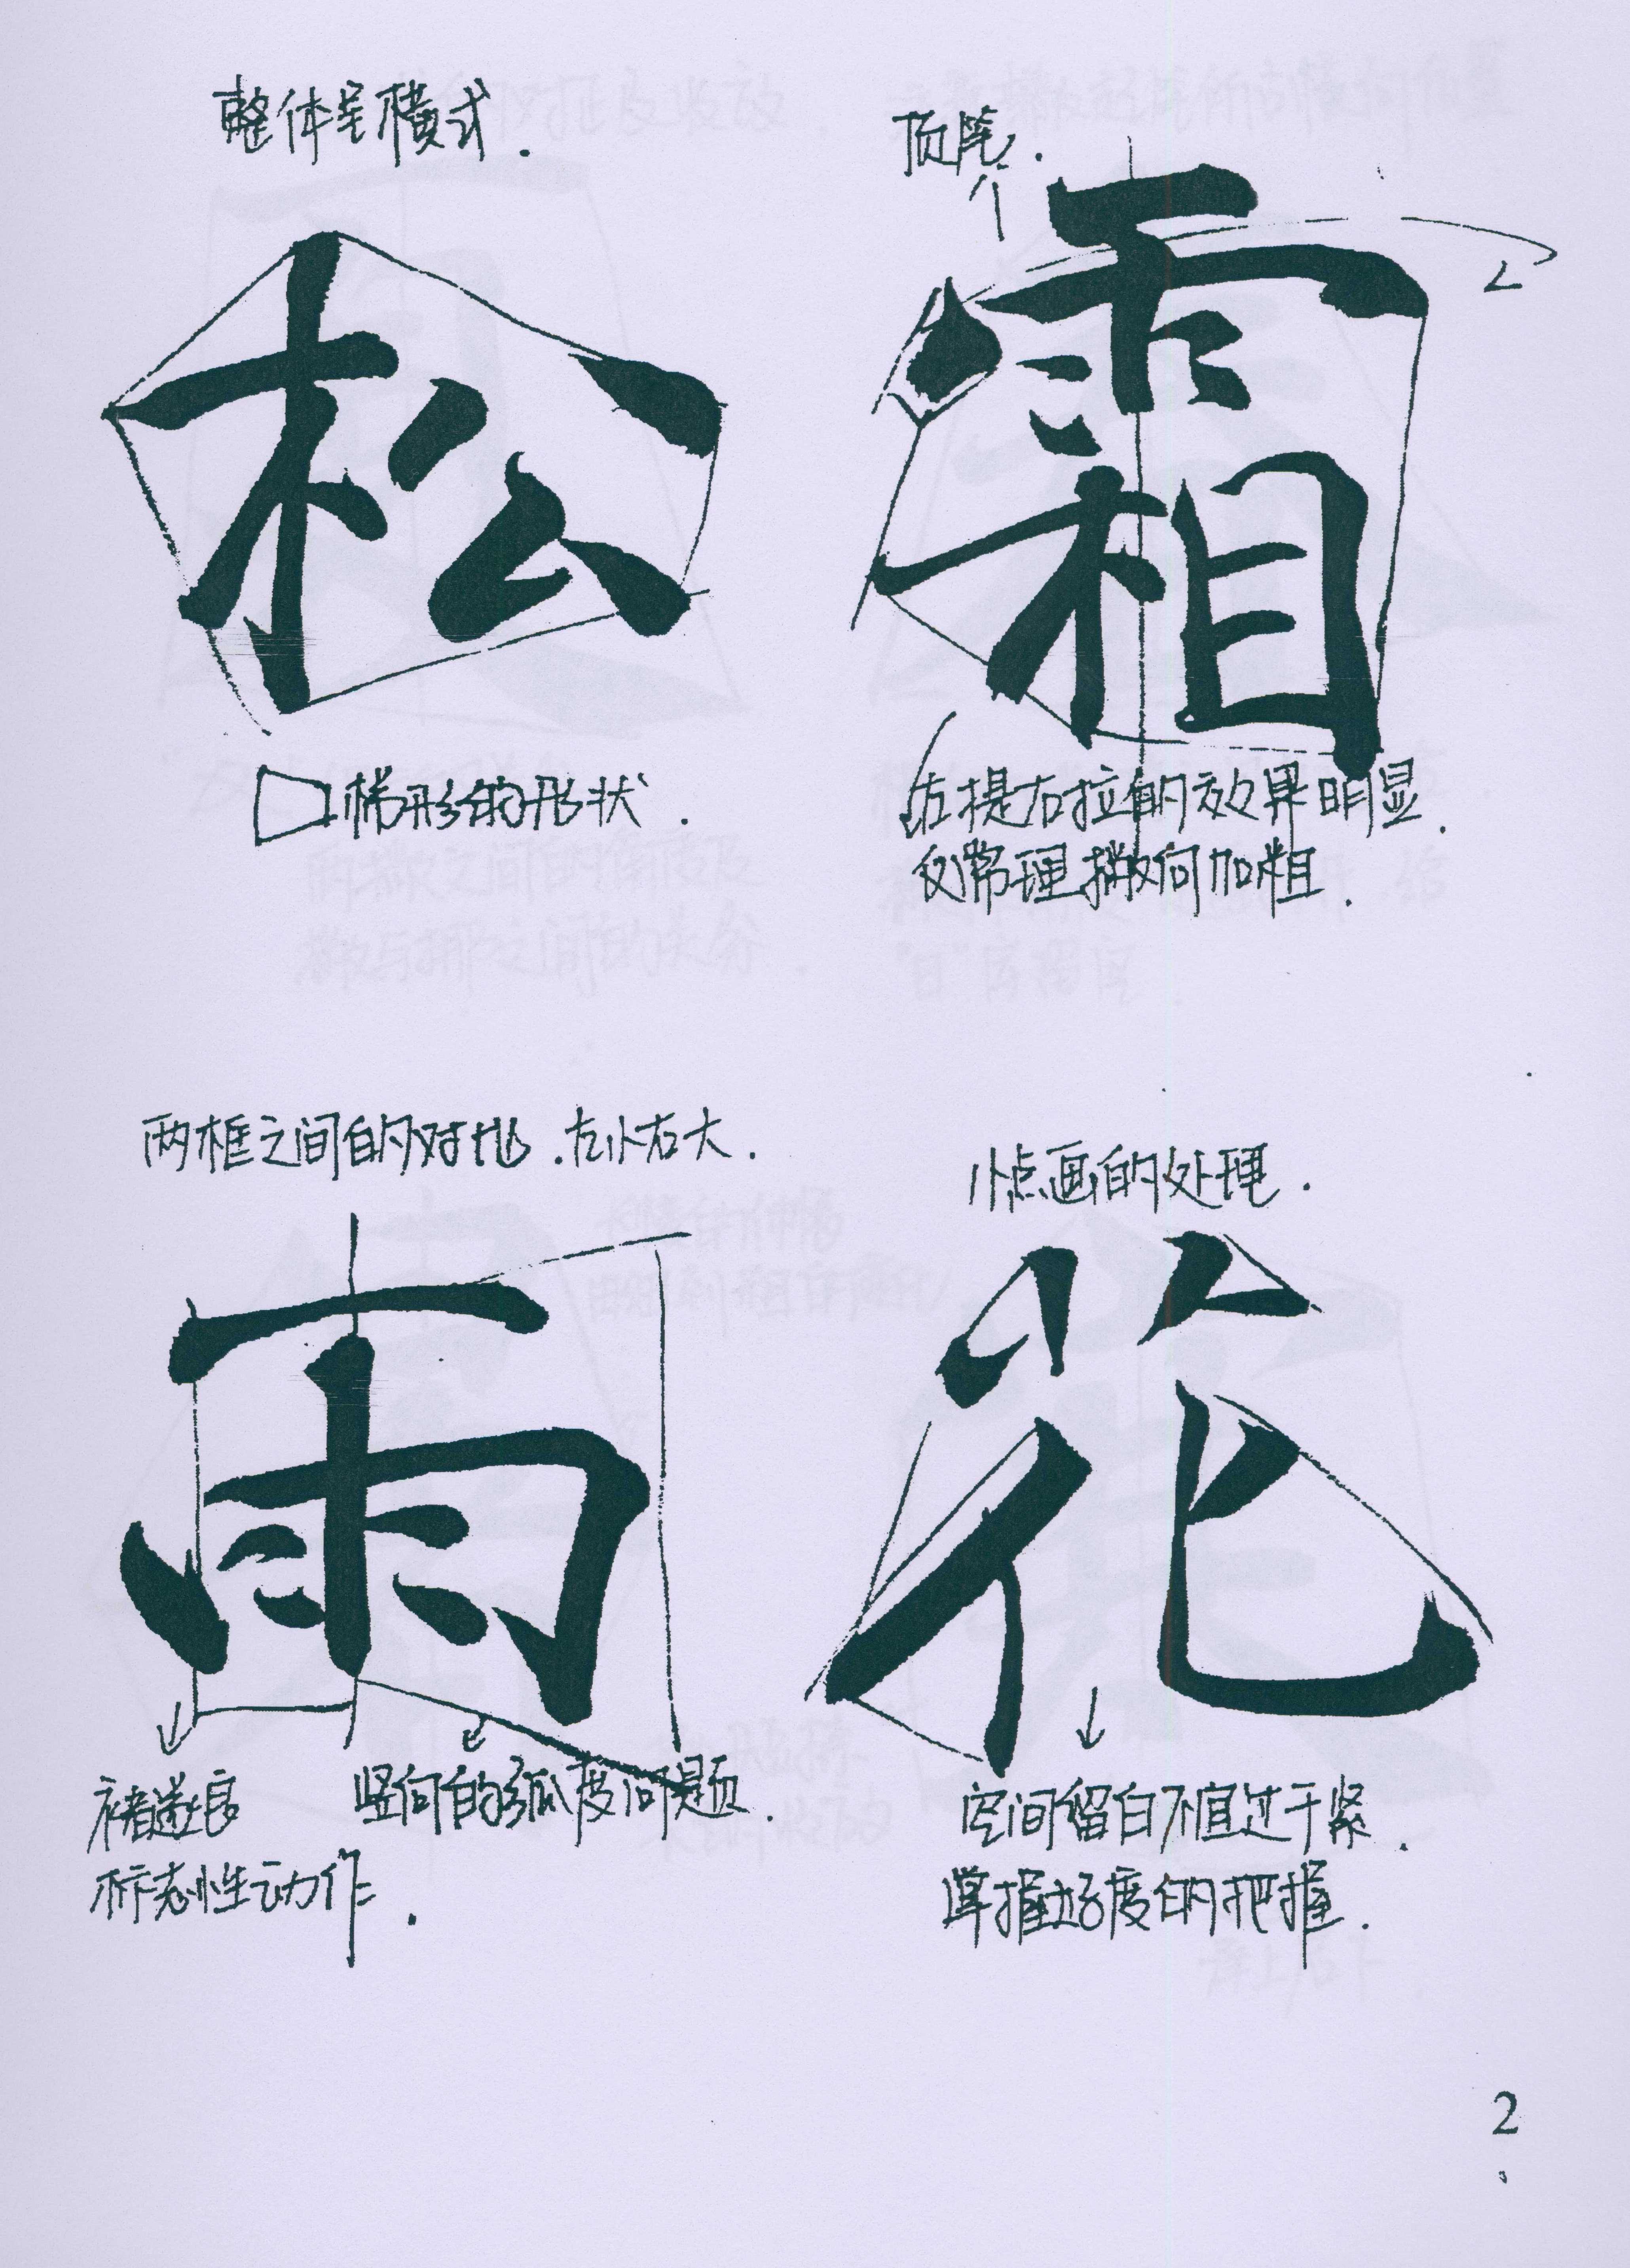 整体呈横式.
松
梯形的形状.
顶笔.
霜
左提右拉的效果明显.
反常理撇向加粗.
两框之间的对比.左小右大.
雨
褚遂良
标志性动作.
竖向的弧度问题.
小点画的处理.
花
空间留白不宜过于紧.
掌握好度的把握.
2